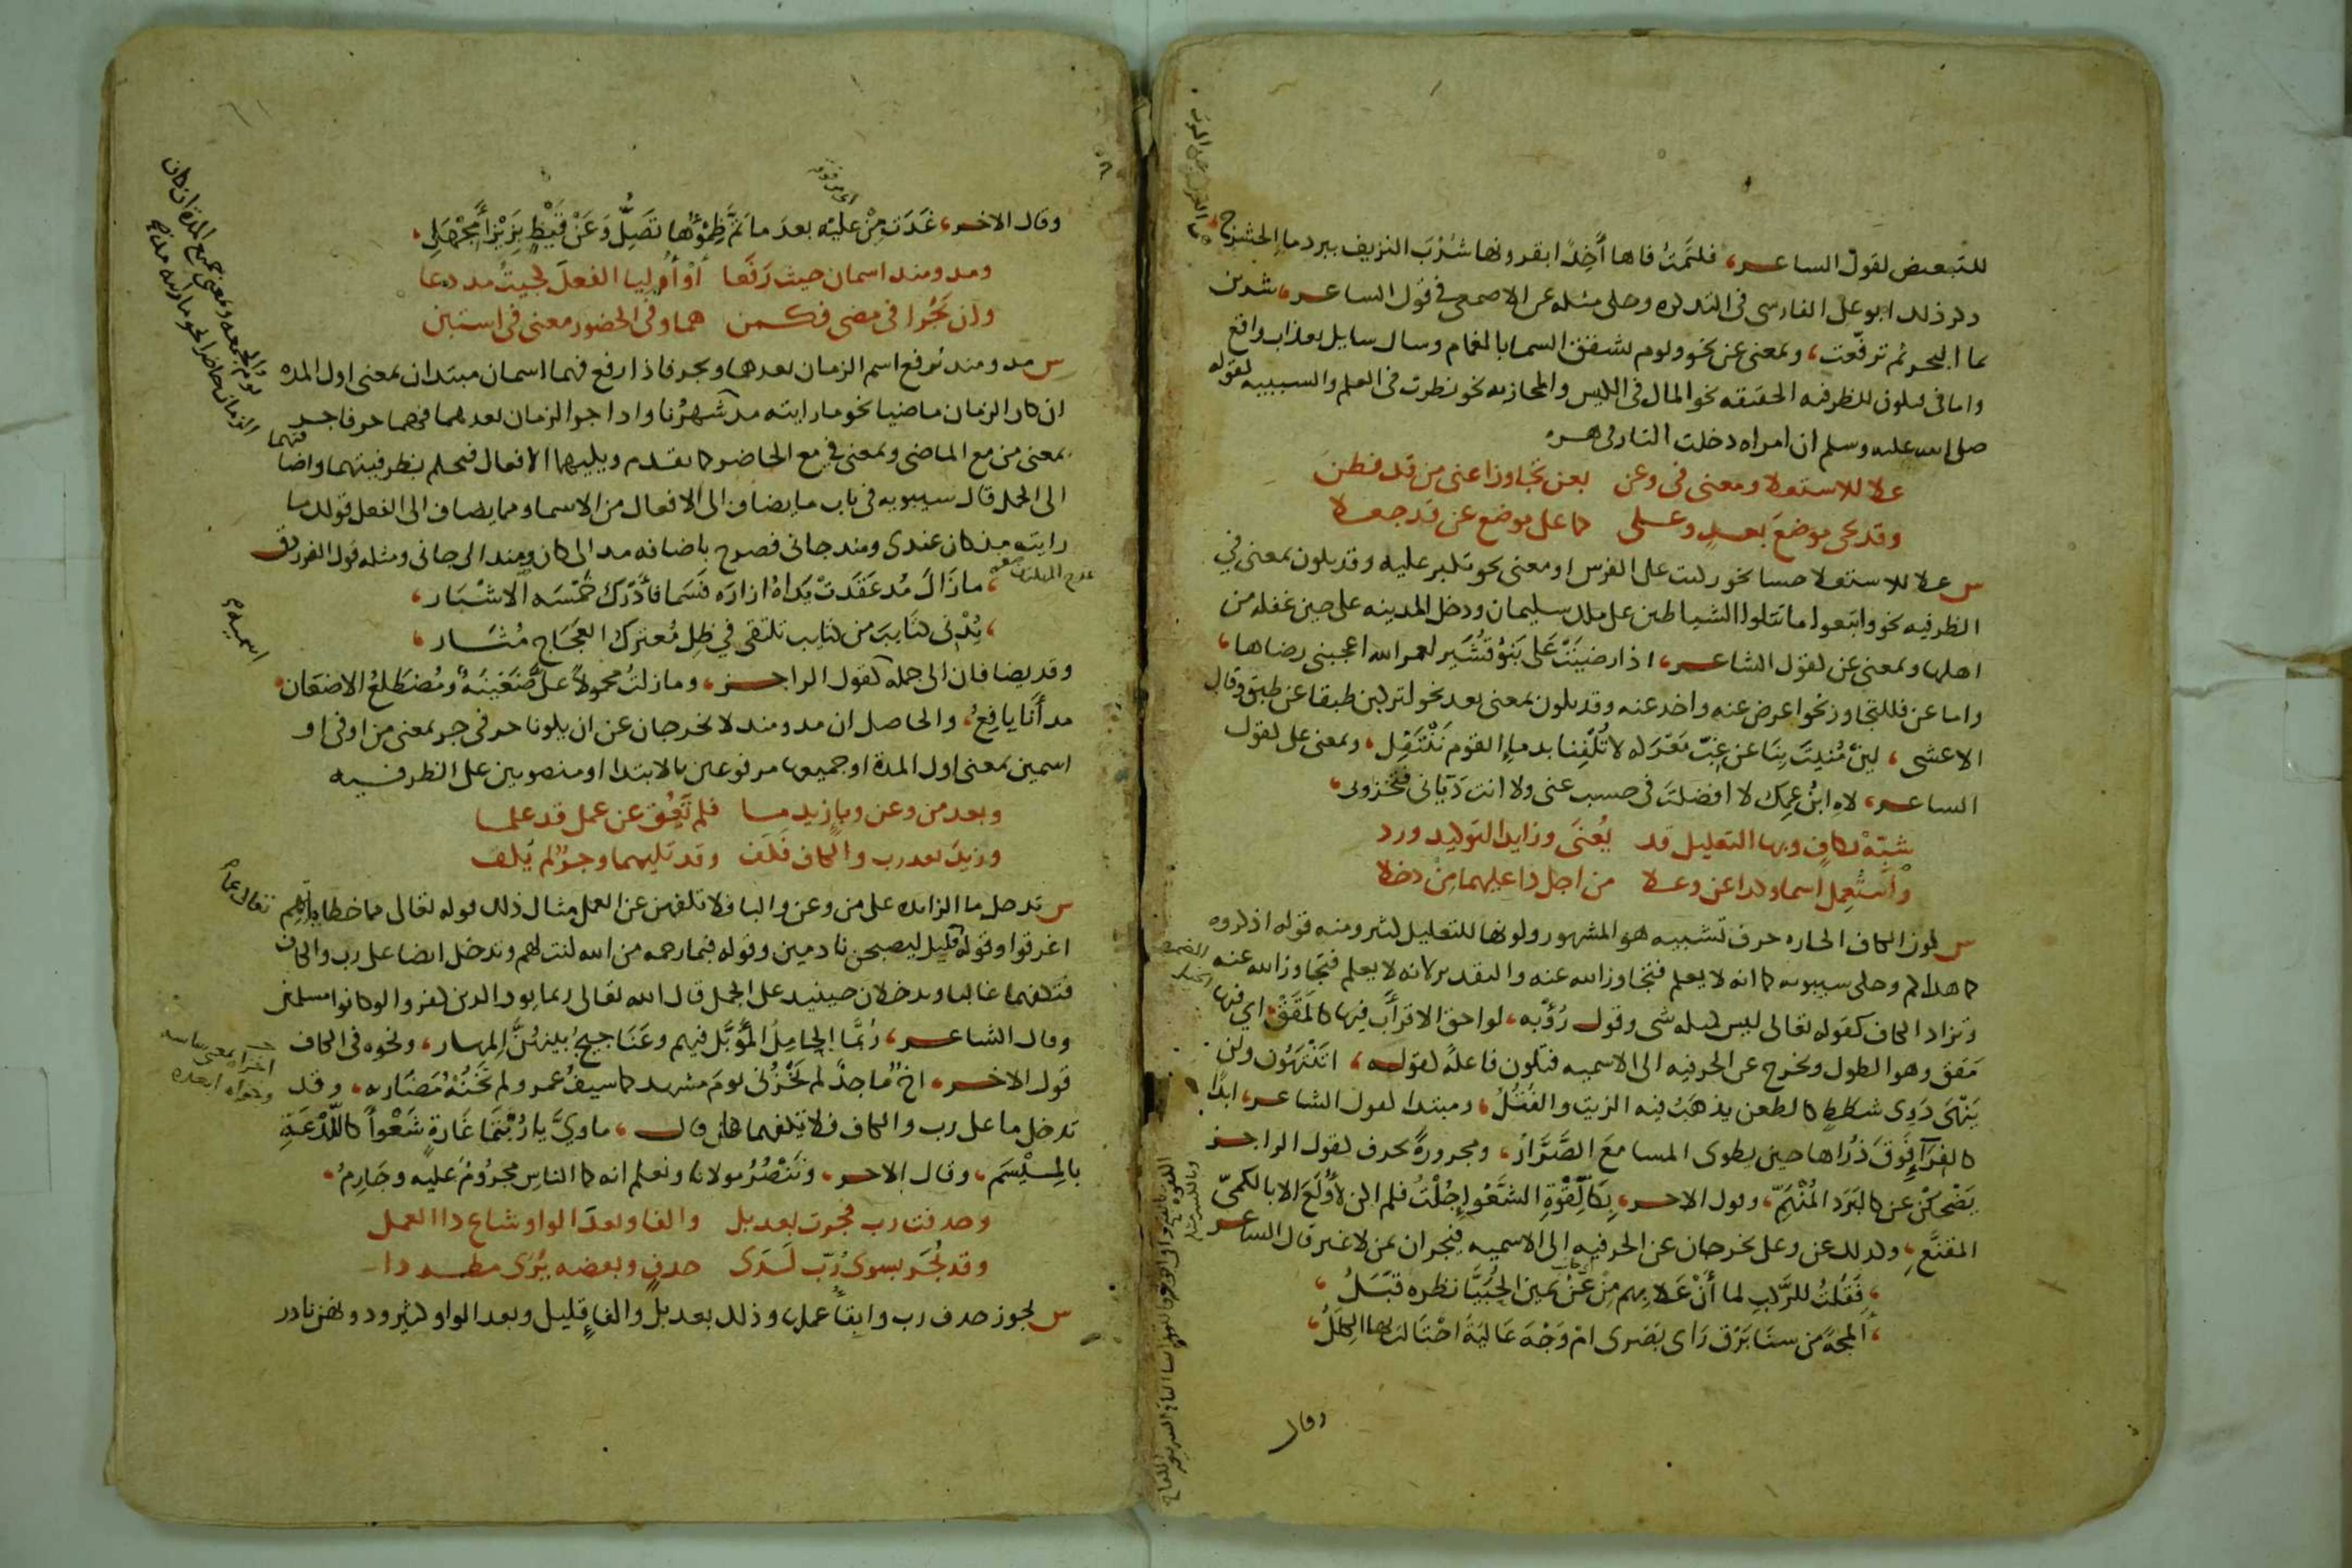 للتبعيض لقول الساعر، فلثمت فاها أخذا بقرونها شرب النزيف ببرد ماء الحشرج
ذكر ذلك ابو على الفارسى فى التذكره وحكى مثله عن الاصمعى فى قول الساعر، شربن
بماء البحر ثم ترفعت، وبمعنى عن نحو ويوم تشقق السما بالغمام وسال سايل بعذاب واقع
واما فى فتكون للظرفيه الحقيقه نحو المال فى الكيس والمجازيه نحو نظرت فى العلم والسببيه لقوله
صلى الله عليه وسلم ان امراه دخلت النار فى هره
على للاستعلا ومعنى فى وعن بعن تجاوزا عنى من قد فطن
وقد تجى موضع بعد وعلى كما على موضع عن قد جعلا
س على للاستعلا حسا نحو ركبت على الفرس او معنى نحو تكبر عليه وقد يكون بمعنى فى
الظرفيه نحو واتبعوا ما تتلوا الشياطين على ملك سليمان ودخل المدينه على حين غفله من
اهلها وبمعنى عن لقول الشاعر، اذا رضيت على بنو قشير لعمر الله اعجبنى رضاها،
واما عن فللتجاوز نحو اعرض عنه واخذ عنه وقد يكون بمعنى بعد نحو لتركبن طبقا عن طبق وقال
الاعشى، لين منيت بنا عن غب معركه لا تلفنا بدماء القوم ننتفل، وبمعنى على لقول
الساعر، لاه ابن عمك لا افضلت فى حسب عنى ولا انت ديانى فتخزونى،
شبه بكاف وبها التعليل قد يعنى وزايدا لتوكيد ورد
واستعمل اسما وكذا عن وعلى من اجل ذا عليهما من دخلا
س كون الكاف الجاره حرف تشبيه هو المشهور وكونها للتعليل كثير ومنه قوله اذكروه
كما هداكم وحكى سيبويه كما انه لا يعلم فتجاوز الله عنه والتقدير لانه لا يعلم فتجاوز الله عنه
وتزاد الكاف كقوله تعالى ليس كمثله شى وقول رؤبه، لواحق الاقراب فيها كالمقق، اى فيها
مقق وهو الطول وتخرج عن الحرفيه الى الاسميه فتكون فاعله لقوله، اتنتهون ولن
ينهى ذوى شطط كالطعن يذهب فيه الزيت والفتل، ومبتدا لقول الشاعر، ابدا
كالفراء فوق ذراها حين يطوى المسامع الصرار، ومجرورة بحرف لقول الراجز
يضحكن عن كالبرد المنهم، وقول الاخر، بكاللقوة الشغواء جلت فلم اكن لأولع الا بالكمى
المقنع، وكذلك عن وعلى يخرجان عن الحرفيه الى الاسميه فيجران بمن لا غير قال الساعر
، فقلت للركب لما أن علا بهم من عن يمين الحبيا نظره قبل،
، ألمحة من سنا برق راى بصرى ام وجه عالية اختالت بها الكلل،
وقال
وقال الاخر، غدت من عليه بعد ما تم ظمؤها تصل وعن قيظ بزيزأ مجهل،
ومذ ومنذ اسمان حيث رفعا أو أوليا الفعل كجيت مذ دعا
وان يجرا فى مضى فكمن هما وفى الحضور معنى فى استبن
س مذ ومنذ يرفع اسم الزمان بعدهما ويجر فاذا رفع فهما اسمان مبتدان بمعنى اول المده
ان كان الزمان ماضيا نحو ما رايته مذ شهرنا واذا جر الزمان بعدهما فهما حرفا جر
بمعنى من مع الماضى وبمعنى فى مع الحاضر كما تقدم ويليهما الافعال فتحكم بظرفيتهما واضافتهما
الى الجمل قال سيبويه فى باب ما يضاف الى الافعال من الاسما ومما يضاف الى الفعل قولك ما
رايته مذ كان عندى ومنذ جانى فصرح باضافه مذ الى كان ومنذ الى جانى ومثله قول الفرزدق
، ما زال مذ عقدت يداه ازاره فسما فأدرك خمسه الاشبار،
، يدنى كتايب من كتايب تلتقى فى ظل معترك العجاج مثار،
وقد يضافان الى جمله كقول الراجز، وما زلت محمولا على ضغينة ومضطلع الاضغان
مذ أنا يافع، والحاصل ان مذ ومنذ لا يخرجان عن ان يكونا حرفى جر بمعنى من او فى او
اسمين بمعنى اول المدة او جميعها مرفوعين بالابتدا او منصوبين على الظرفيه
وبعد من وعن وباء زيد ما فلم تعق عن عمل قد علما
وزيد بعد رب والكاف فكف وقد تليهما وجر لم يكف
س تدخل ما الزايده على من وعن والبا فلا تكفهن عن العمل مثال ذلك قوله تعالى مما خطاياهم
اغرقوا وقوله تعالى عما قليل ليصبحن نادمين وقوله فبما رحمه من الله لنت لهم وتدخل ايضا على رب والكاف
فتكفهما غالبا ويدخلان حينيذ على الجمل قال الله تعالى ربما يود الذين كفروا لو كانوا مسلمين
وقال الشاعر، ربما الجامل المؤبل فيهم وعناجيج بينهن المهار، ونحوه فى الكاف
قول الاخر، اخ ماجد لم يخزنى يوم مشهد كما سيف عمرو لم تخنه مضاربه، وقد
تدخل ما على رب والكاف فلا تكفهما قال، ماوى يا ربتما غارة شعوا كاللذعة
بالميسم، وقال الاخر، وننصر مولانا ونعلم انه كما الناس مجروم عليه وجارم،
وحذفت رب فجرت بعد بل والفا وبعد الواو شاع ذا العمل
وقد يجر بسوى رب لدى حذف وبعضه يرى مطردا
س يجوز حذف رب وابقاء عملها وذلك بعد بل والفاء قليل وبعد الواو كثير ودونهن نادر